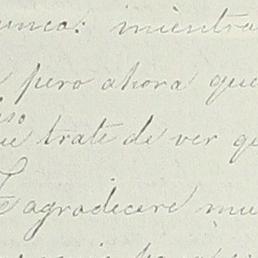 nunca: mientra
pero ahora que
eso
que trate de ver q
Te agradeceré mu